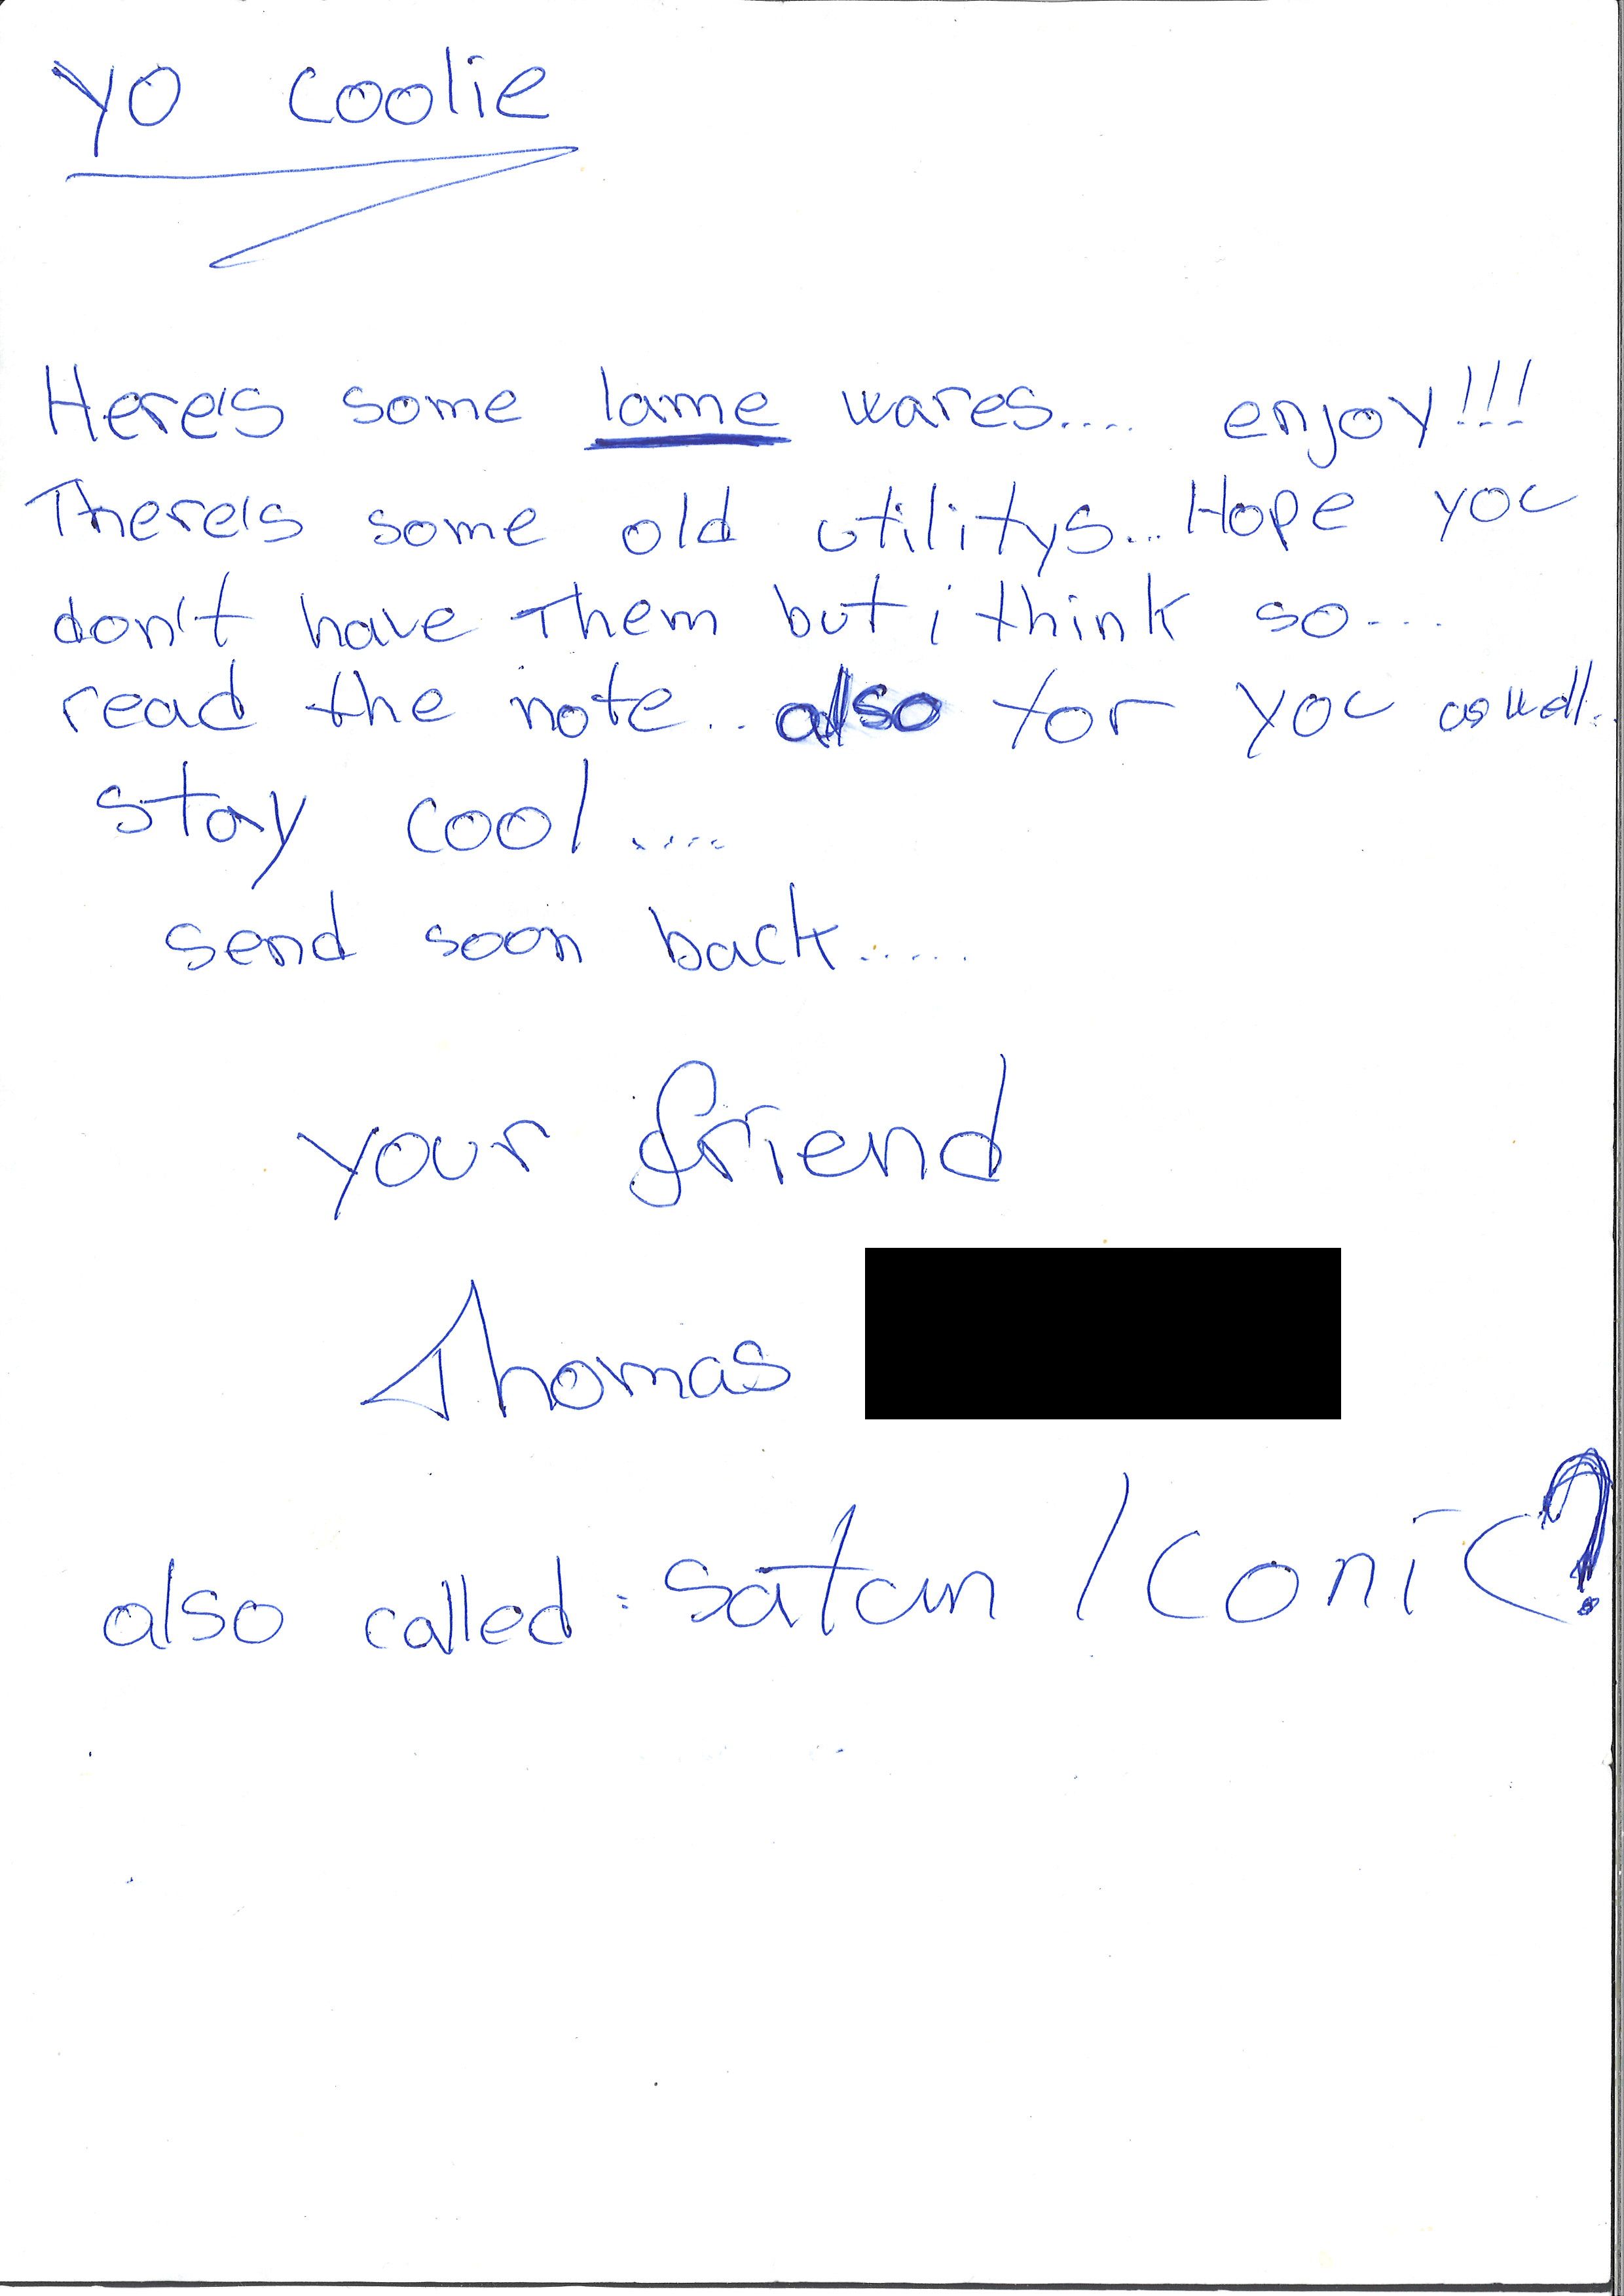 Yo coolie
Here's some lame wares.... enjoy!!!
There's some old utilitys... Hope you
don't have them but i think so....
read the note.. also for you as well..
stay cool.....
send soon back......
your friend
Thomas
also called: Satan / Conic?